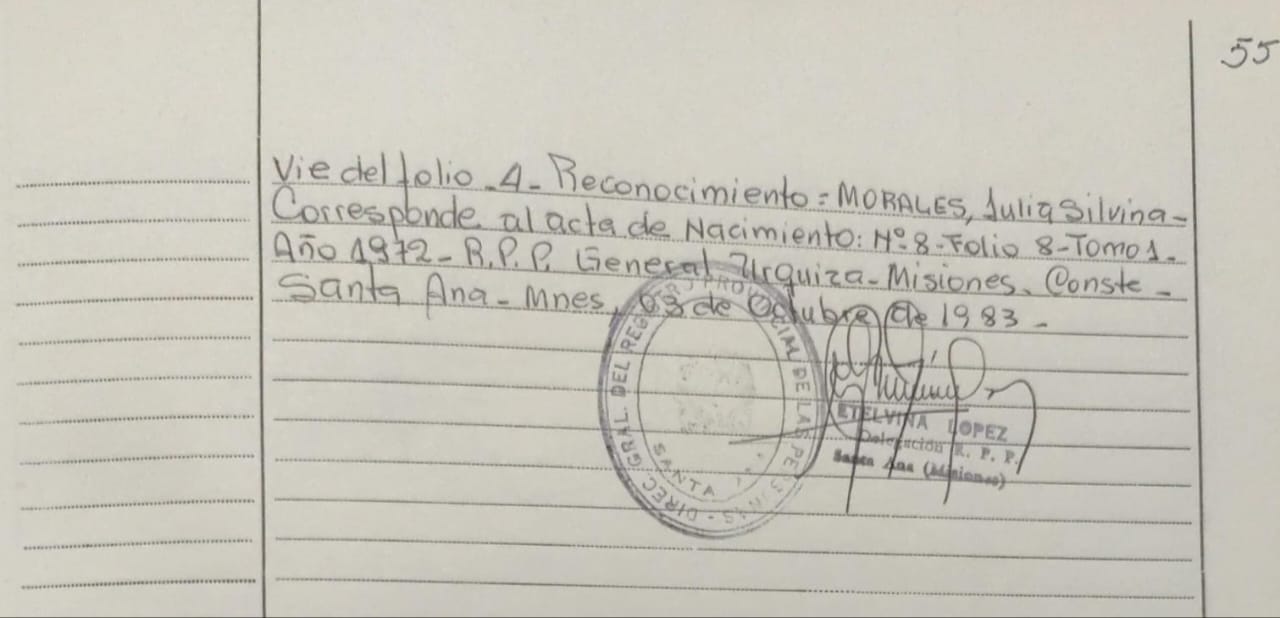 55
Vie del folio -4- Reconocimiento = MORALES, Julia Silvina-
Corresponde al acta de Nacimiento: Nº 8-Folio 8-Tomo 1-
Año 1972- R.P.P. General Urquiza-Misiones. Conste-
Santa Ana - Mnes, 03 de Octubre de 1983-
DIREC. GRAL. DEL REG PROVINCIAL DE LAS PERSONAS
SANTA
ETELVINA LOPEZ
Delegación R. P. P.
Santa Ana (Misiones)